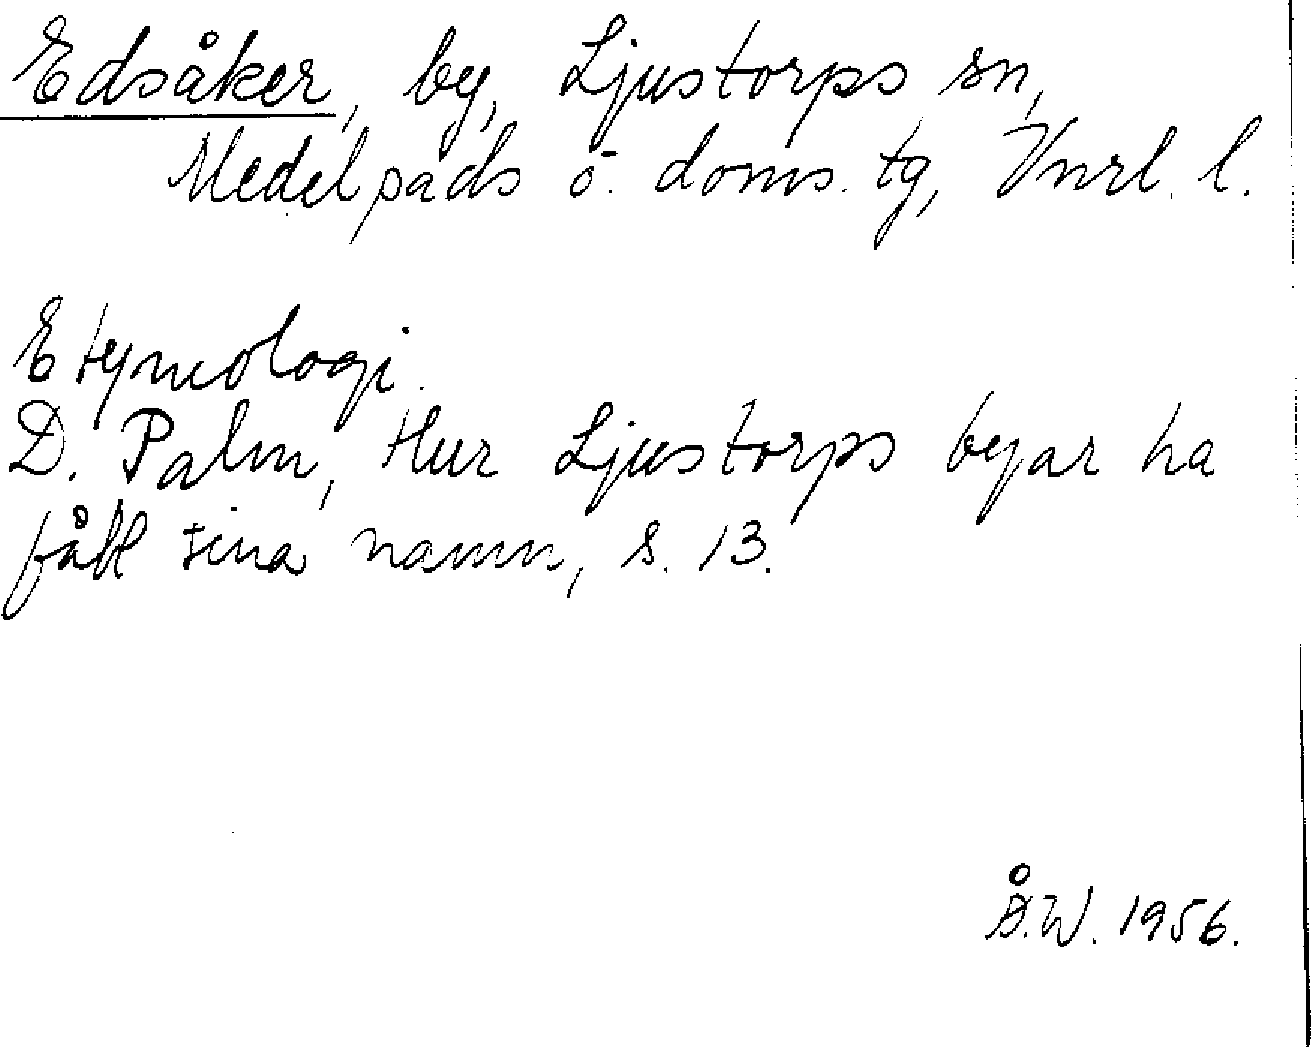 Edsåker, by, Ljustorps sn,
Medelpads ö. doms. tg, Vnrl. l.
Etymologi.
D. Palm, Hur Ljustorps byar ha
fått sina namn, s. 13.
Å.W. 1956.